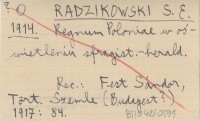 ? O RADZIKOWSKI S. E.
1914. Regnum Poloniae w oś-
wietleniu sfragist.-herald.
Rec.: Fest Sándor,
Tört. Szemle (Budapest?)
1917: 84.